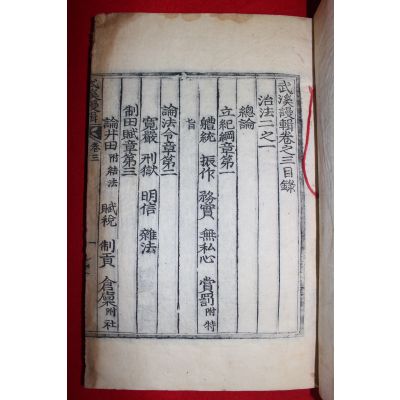 武溪謾輯卷之三目錄
治法二之一
總論
立紀綱章第一
軆統 振作 務實 無私心 賞罰附特
旨
論法令章第二
寬嚴 刑獄 明信 雜法
制田賦章第三
論井田附結法 賦稅 制貢 倉廩附社
武溪謾輯 卷三 一